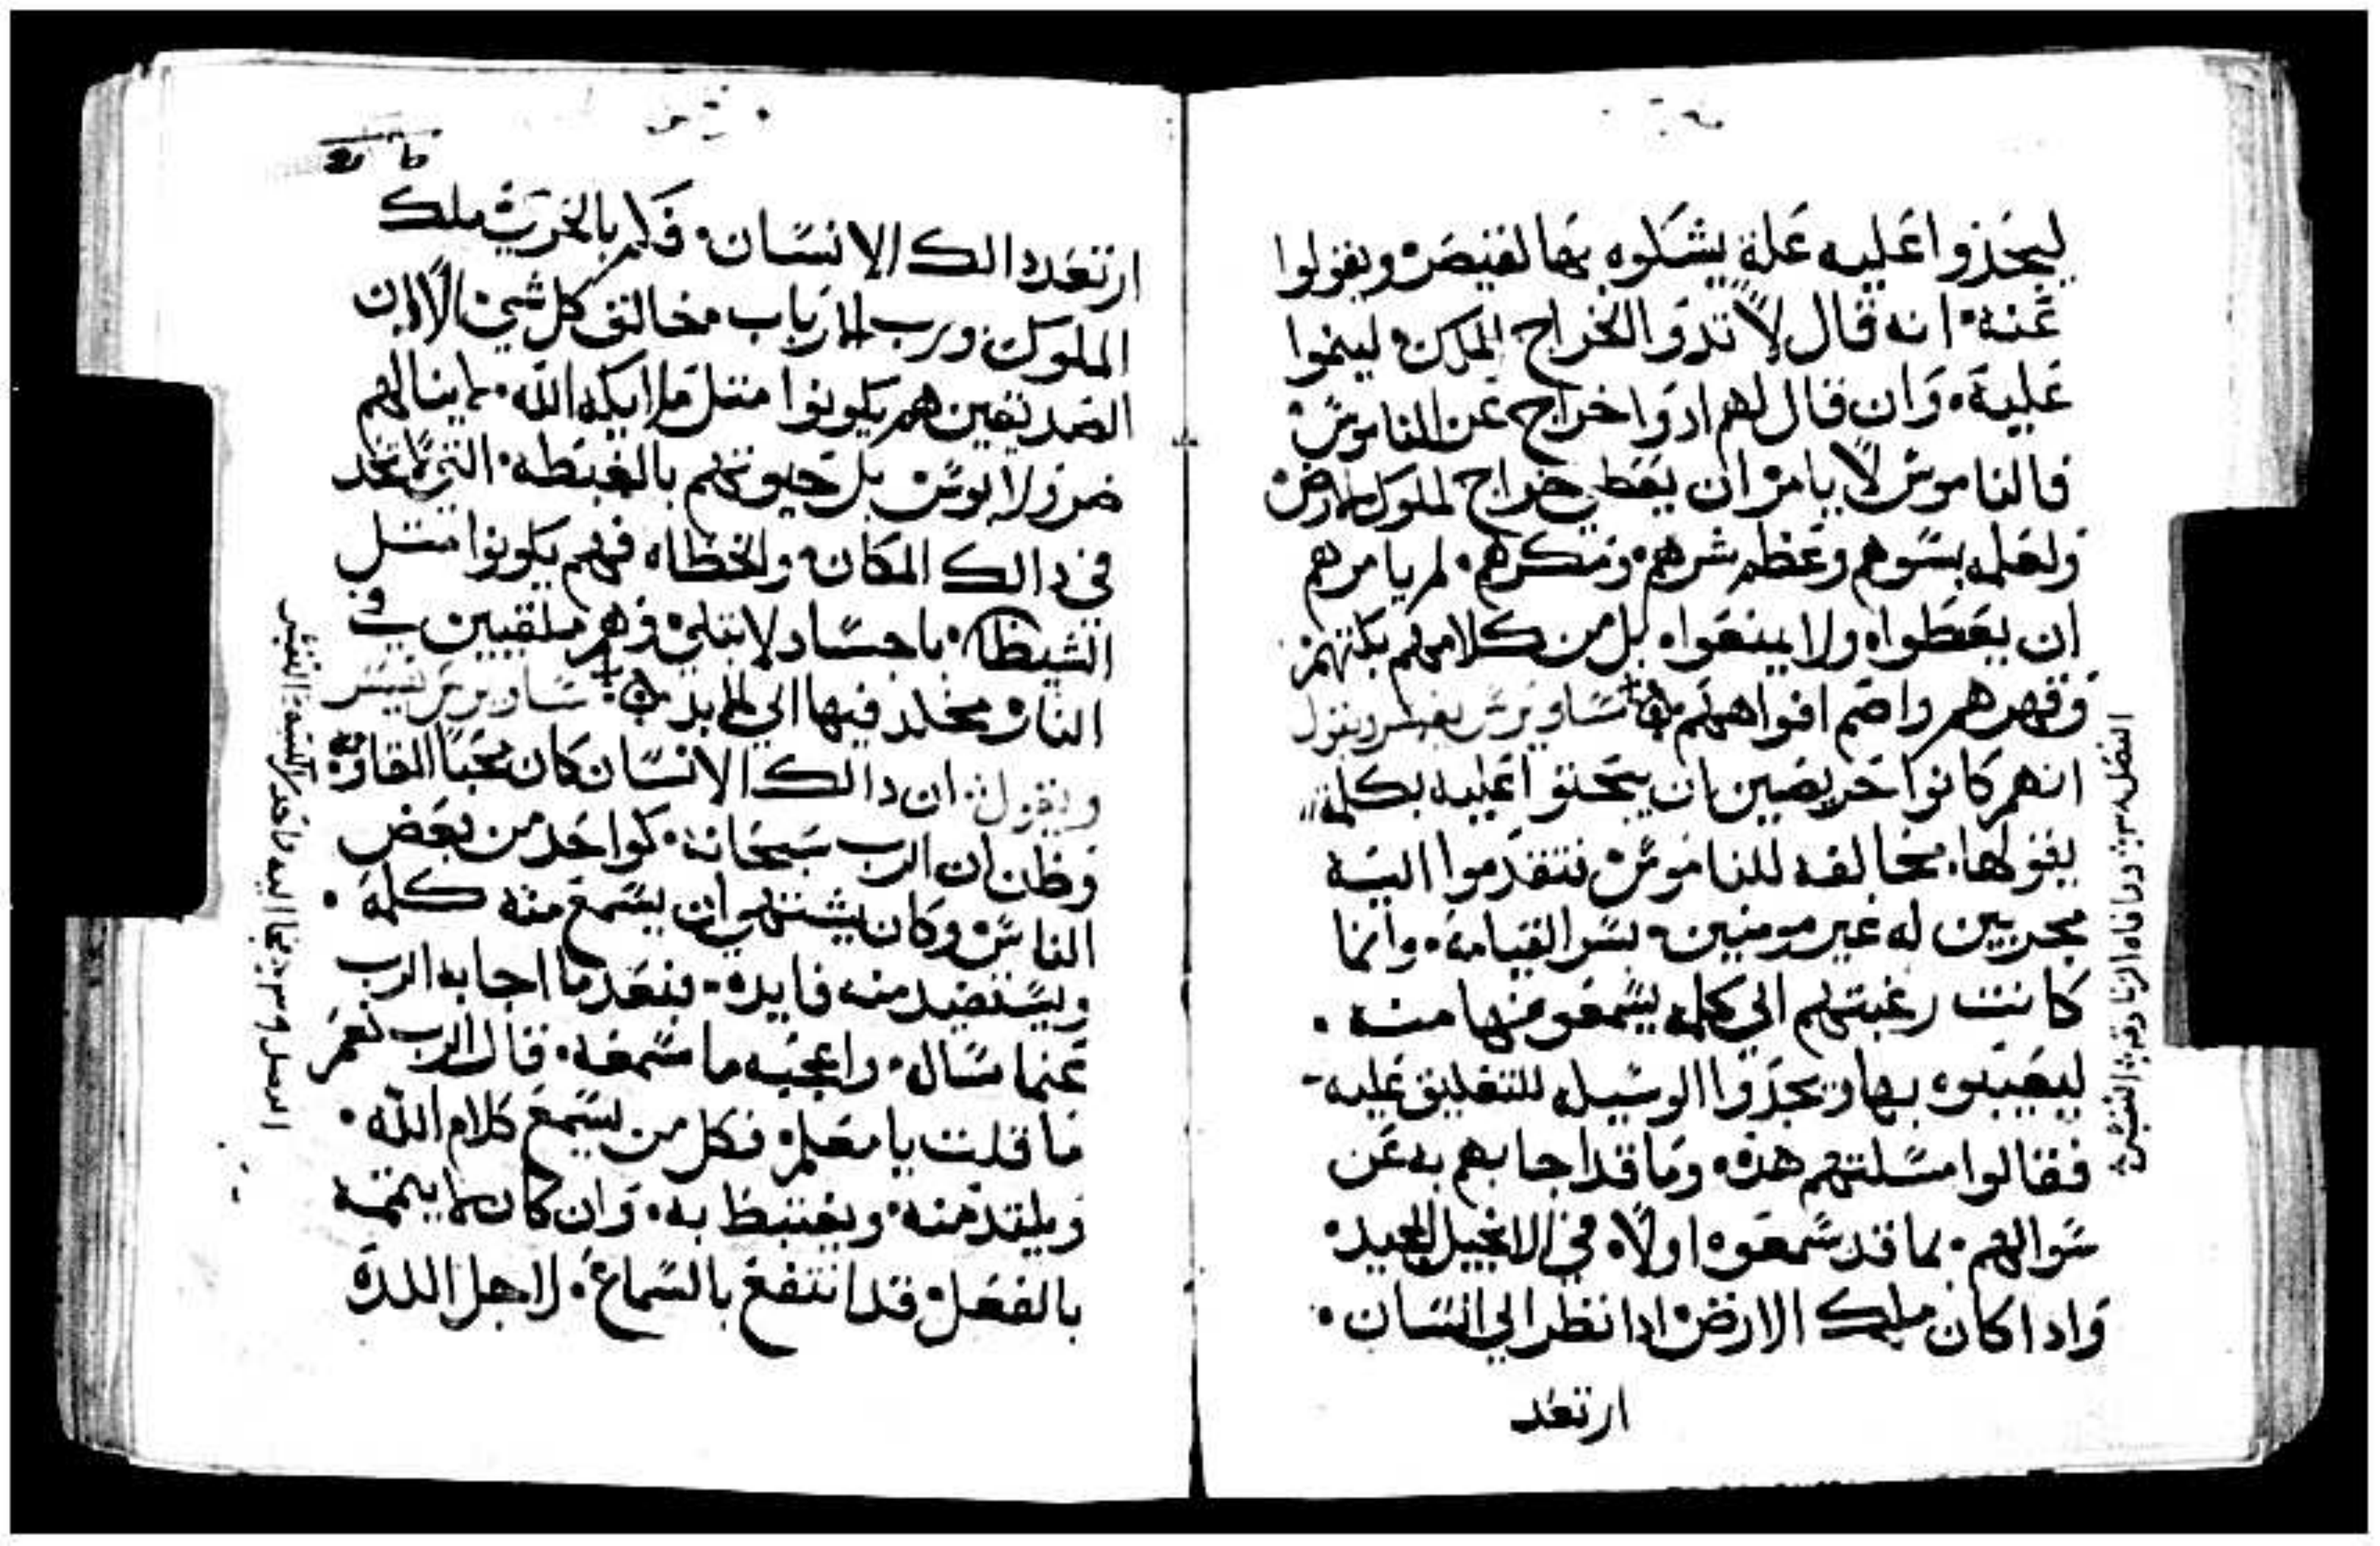 ليجدوا عليه علة يشكوه بها لقيصر ويقولوا
عنه انه قال لا تدوا الخراج للملك لينموا
عليه وان قال لهم ادوا خراج عن الناموس
فالناموس لا يامر ان يعطي خراج لملوك الارض
ولعلمه بسوهم وعظم شرهم ومكرهم لم يامرهم
ان يعطوا ولا يمنعوا بل من كلامهم بكتهم
وقهرهم واصم افواههم ساويرس يفسر ويقول
انهم كانوا حريصين ان يحتوا عليه بكلمة
يقولها مخالفه للناموس فتقدموا اليه
مجربين له غير مومنين بسر القيامه وانما
كانت رغبتهم الي كلمه يسمعوها منه
ليعيبوه بها ويجدوا الوسيله للتعليق عليه
فقالوا مسلتهم هذه وما قد اجابهم به عن
سوالهم بما قد سمعوه اولا في الانجيل المجيد
وادا كان ملك الارض ادا نظر الي انسان
ارتعد
ارتعد دالك الانسان فكم بالحري ملك
الملوك ورب الارباب خالق كل شي الا ان
الصديقين هم يكونوا متل ملايكه الله لا ينالهم
ضر ولا بوس بل حيوتهم بالغبطه التي لا تحد
في دالك المكان والخطاه فهم يكونوا متل
الشيطان باجساد لا تبلي وهم ملقيين في
النار مخلد فيها الي الابد ساويرس يفسر
ويقول ان دالك الانسان كان محبا
وظن ان الرب سبحانه كواحد من بعض
الناس وكان يشتهي ان يسمع منه كلمة
ويستفيد منه فايده فبعد ما اجابه الرب
عنما ساله واعجبه ما سمعه قال الرب نعم
ما قلت يا معلم فكل من يسمع كلام الله
ويلتد منه ويغتبط به وان كان لا يتمه
بالفعل قد انتفع بالسماع لاجل اللدة